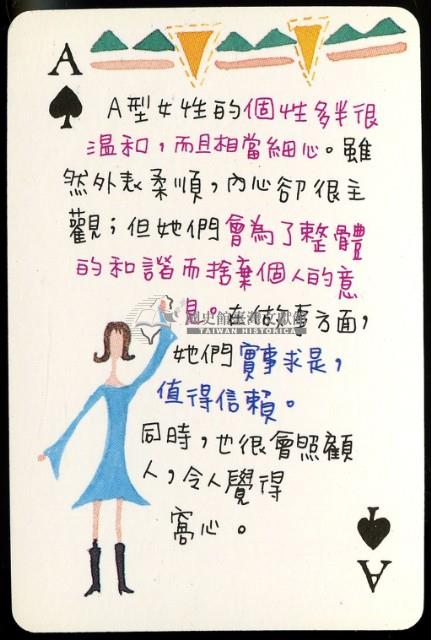 A
A型女性的個性多半很
溫和，而且相當細心。雖
然外表柔順，內心卻很主
觀；但她們會為了整體
的和諧而捨棄個人的意
見。在做事方面，
國史館臺灣文獻館
TAIWAN HISTORICA
她們實事求是，
值得信賴。
同時，也很會照顧
人，令人覺得
窩心。
A